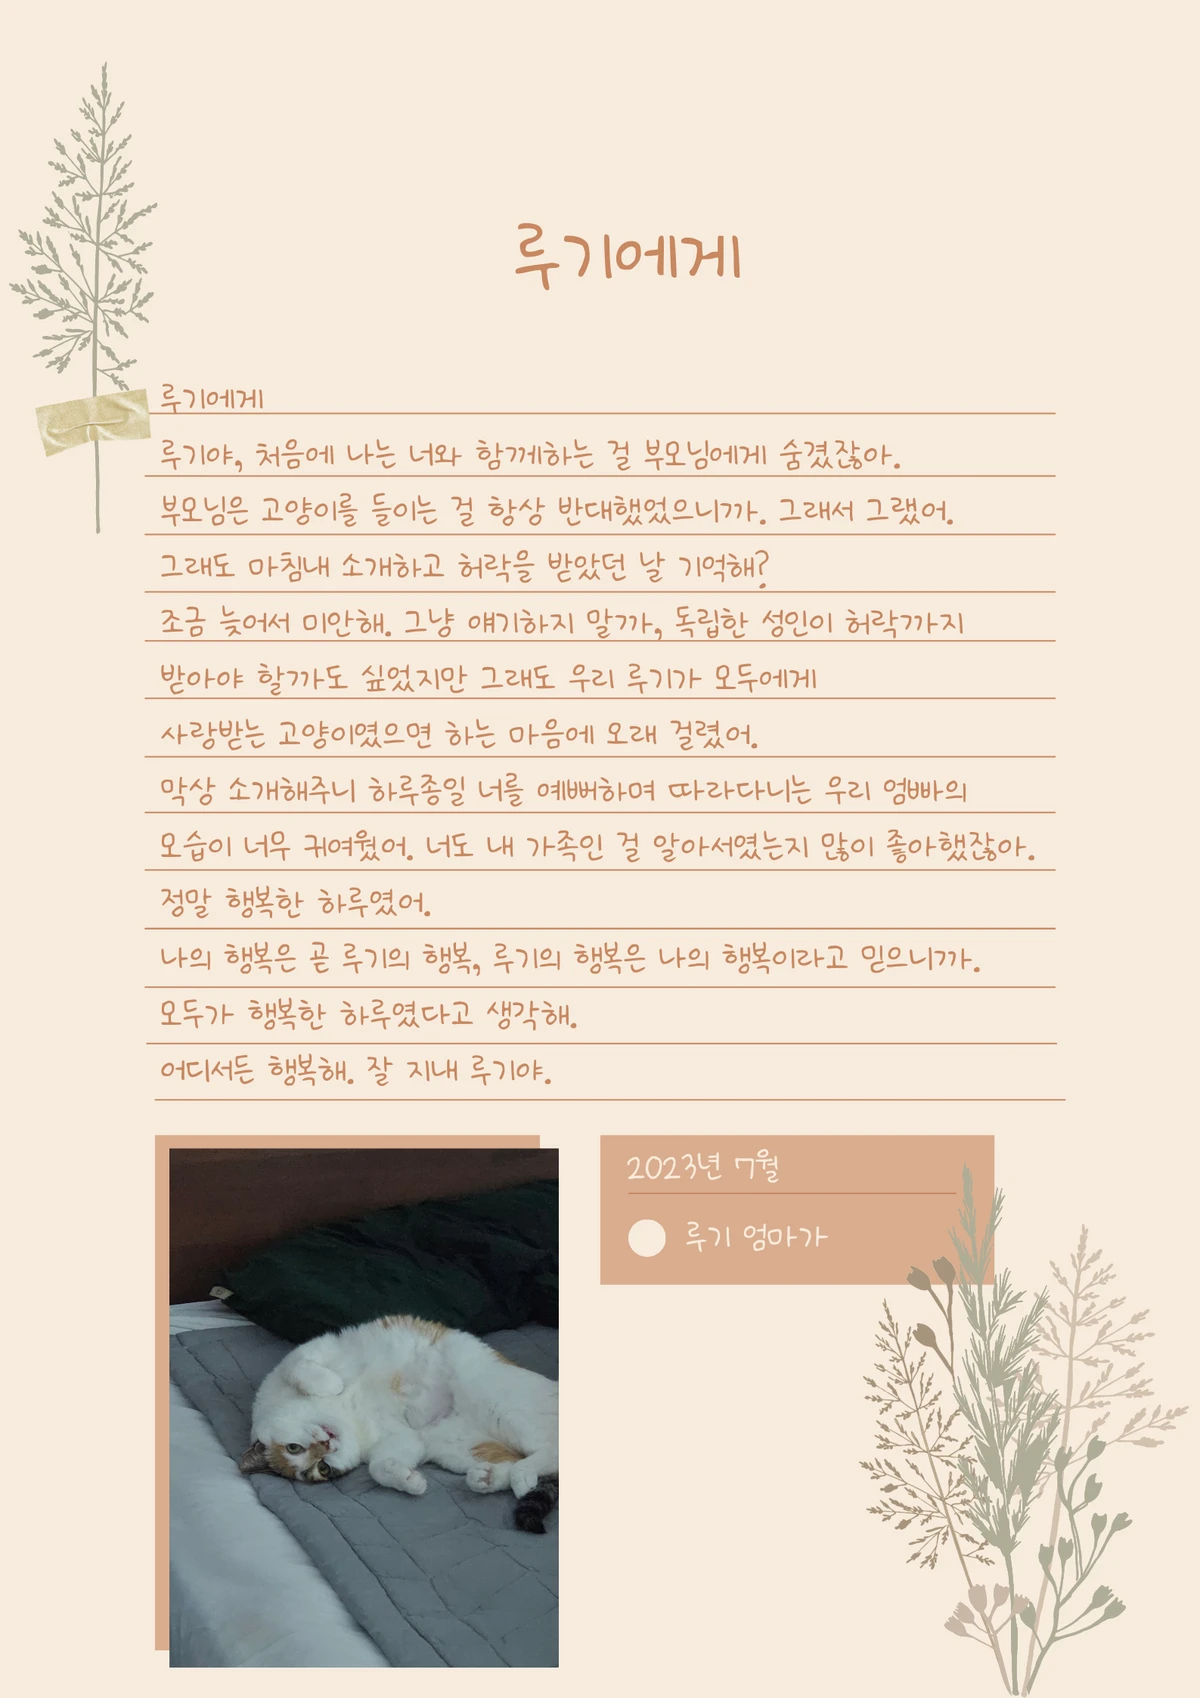 루기에게
루기에게
루기야, 처음에 나는 너와 함께하는 걸 부모님에게 숨겼잖아.
부모님은 고양이를 들이는 걸 항상 반대했었으니까. 그래서 그랬어.
그래도 마침내 소개하고 허락을 받았던 날 기억해?
조금 늦어서 미안해. 그냥 얘기하지 말까, 독립한 성인이 허락까지
받아야 할까도 싶었지만 그래도 우리 루기가 모두에게
사랑받는 고양이였으면 하는 마음에 오래 걸렸어.
막상 소개해주니 하루종일 너를 예뻐하며 따라다니는 우리 엄빠의
모습이 너무 귀여웠어. 너도 내 가족인 걸 알아서였는지 많이 좋아했잖아.
정말 행복한 하루였어.
나의 행복은 곧 루기의 행복, 루기의 행복은 나의 행복이라고 믿으니까.
모두가 행복한 하루였다고 생각해.
어디서든 행복해. 잘 지내 루기야.
2023년 7월
루기 엄마가